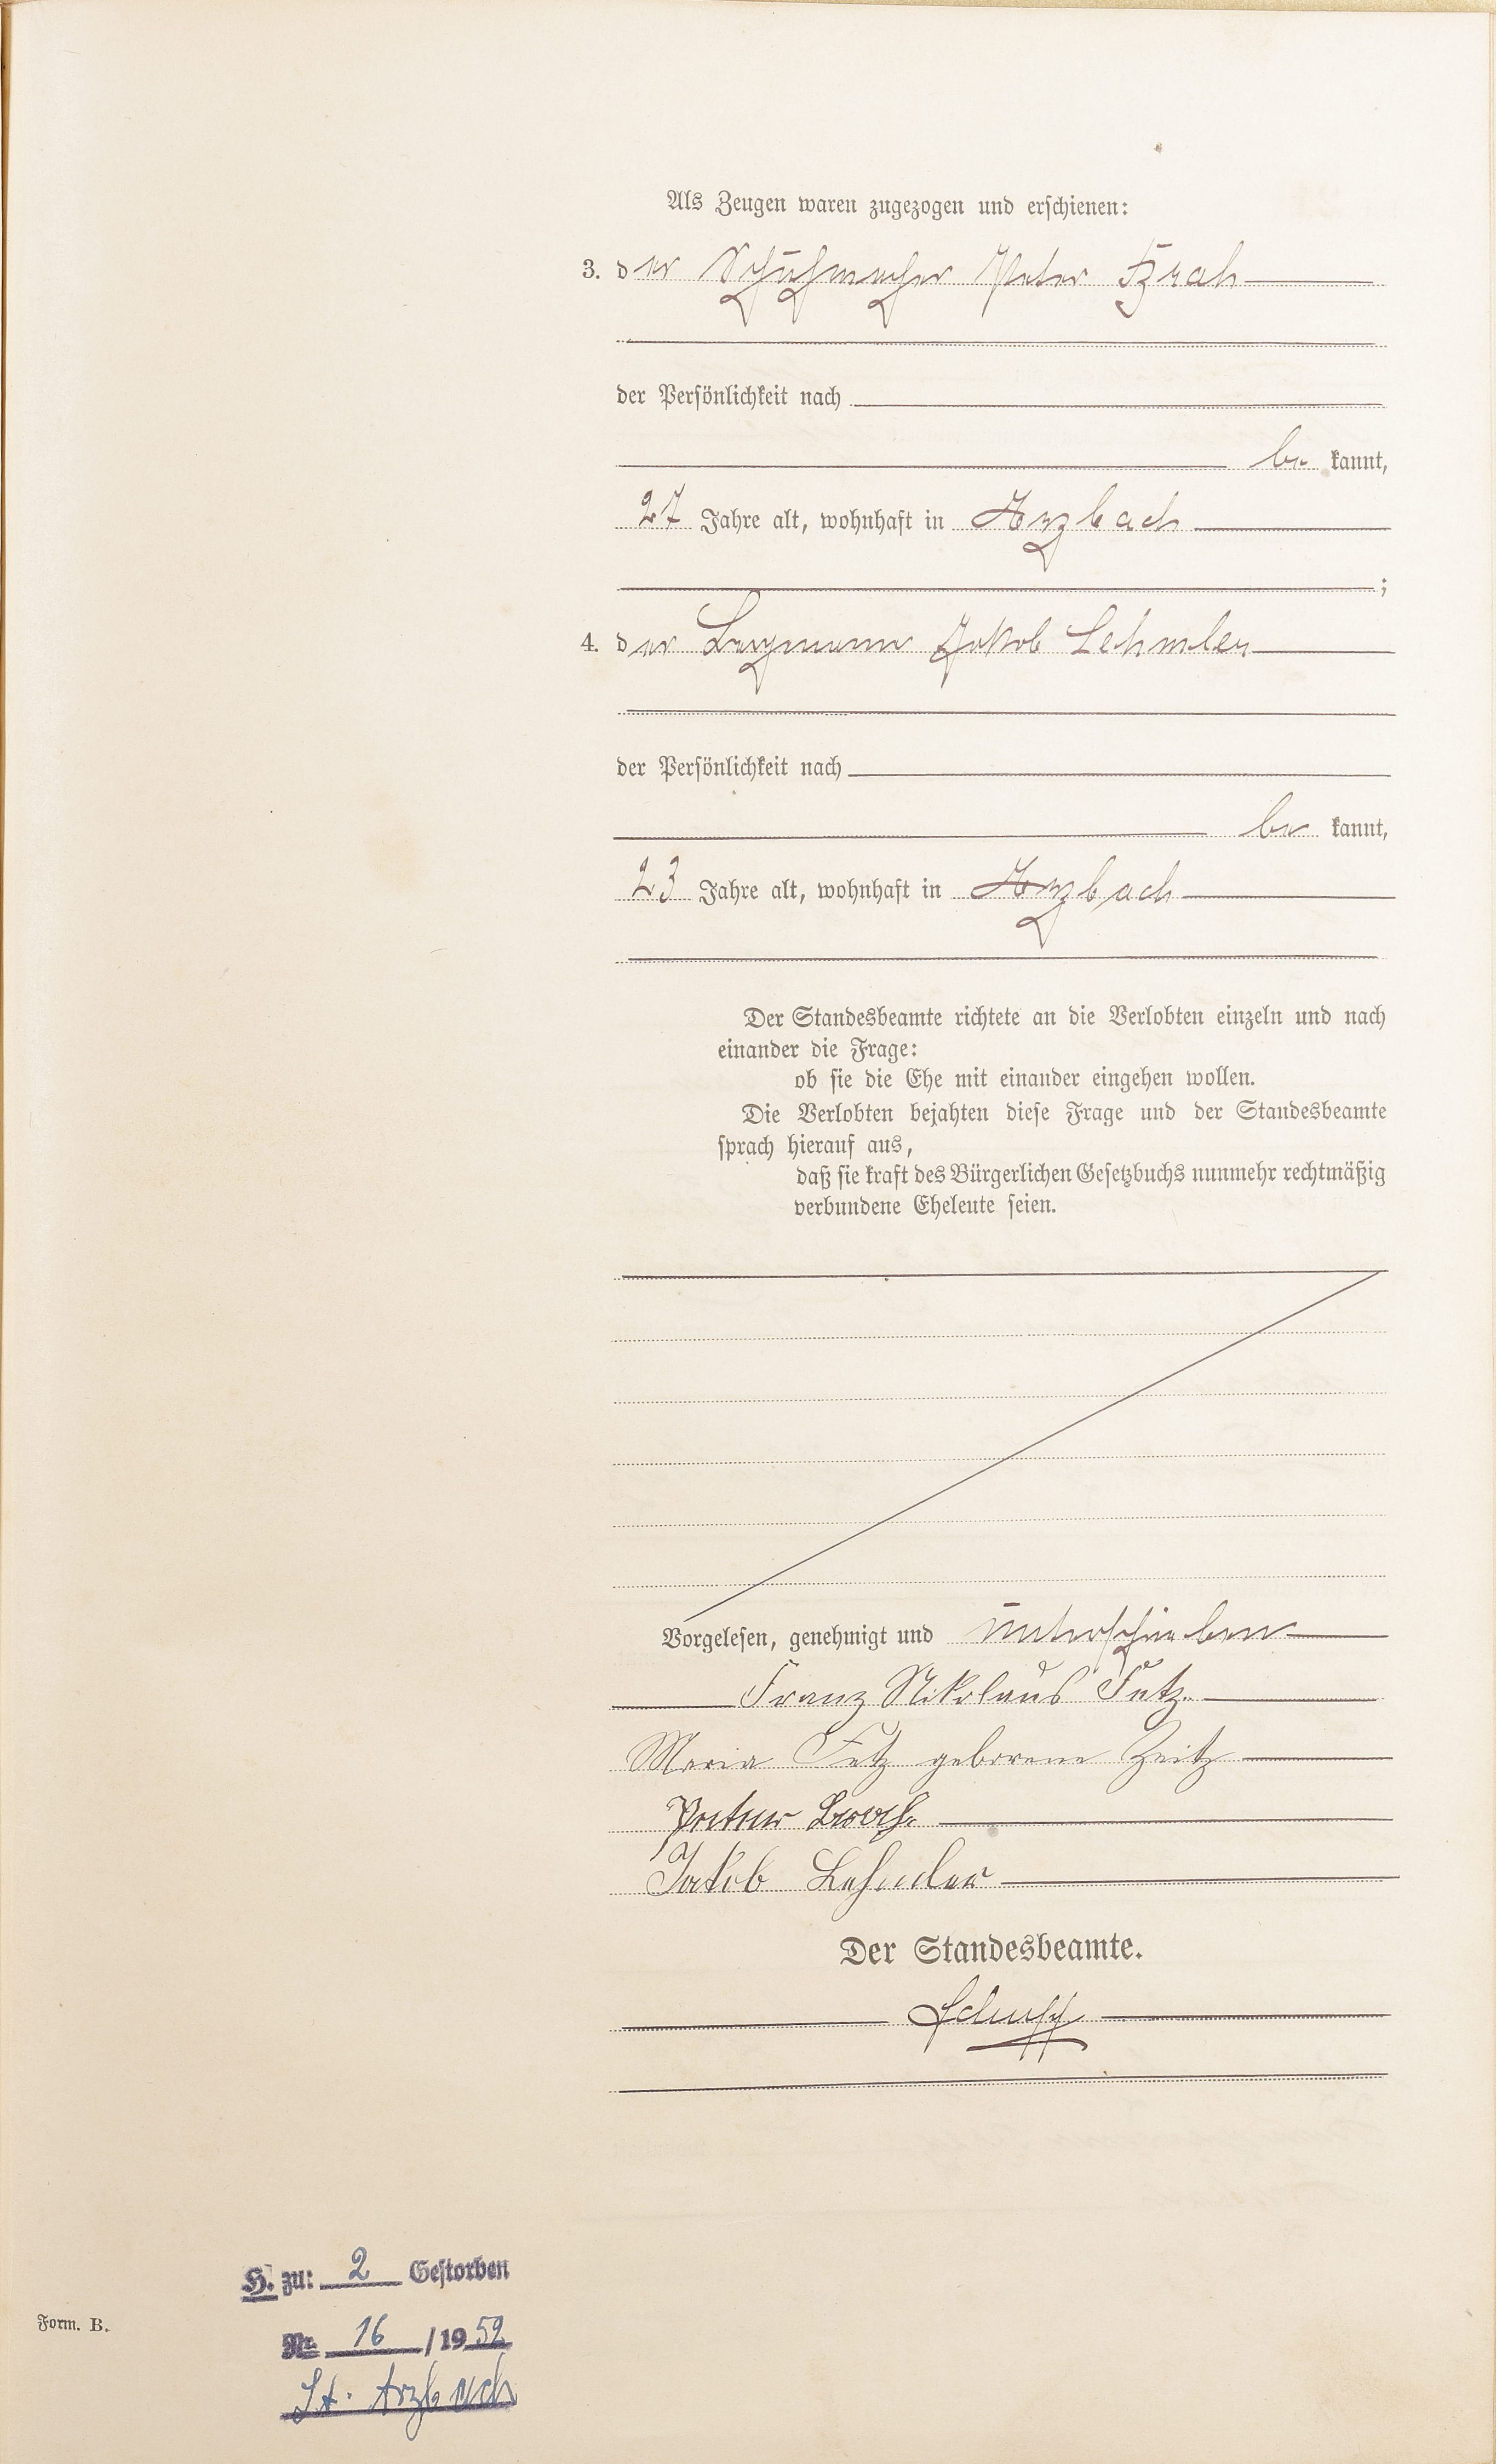 Als Zeugen waren zugezogen und erschienen:
3. der Schuhmacher Peter
der Persönlichkeit nach
be kannt,
27 Jahre alt, wohnhaft in Arzbach
;
4. der Bergmann Jakob Lehmler
der Persönlichkeit nach
be kannt,
23 Jahre alt, wohnhaft in Arzbach
Der Standesbeamte richtete an die Verlobten einzeln und nach
einander die Frage:
ob sie die Ehe mit einander eingehen wollen.
Die Verlobten bejahten diese Frage und der Standesbeamte
sprach hierauf aus,
daß sie kraft des Bürgerlichen Gesetzbuchs nunmehr rechtmäßig
verbundene Eheleute seien.
Vorgelesen, genehmigt und unterschrieben
Franz Nikolaus Fetz.
Maria Fetz geborene Zeitz
Peter
Jakob Lehmler
Der Standesbeamte.
H. zu: 2 Gestorben
Nr. 16 /1952
St. Arzbach
Form. B.